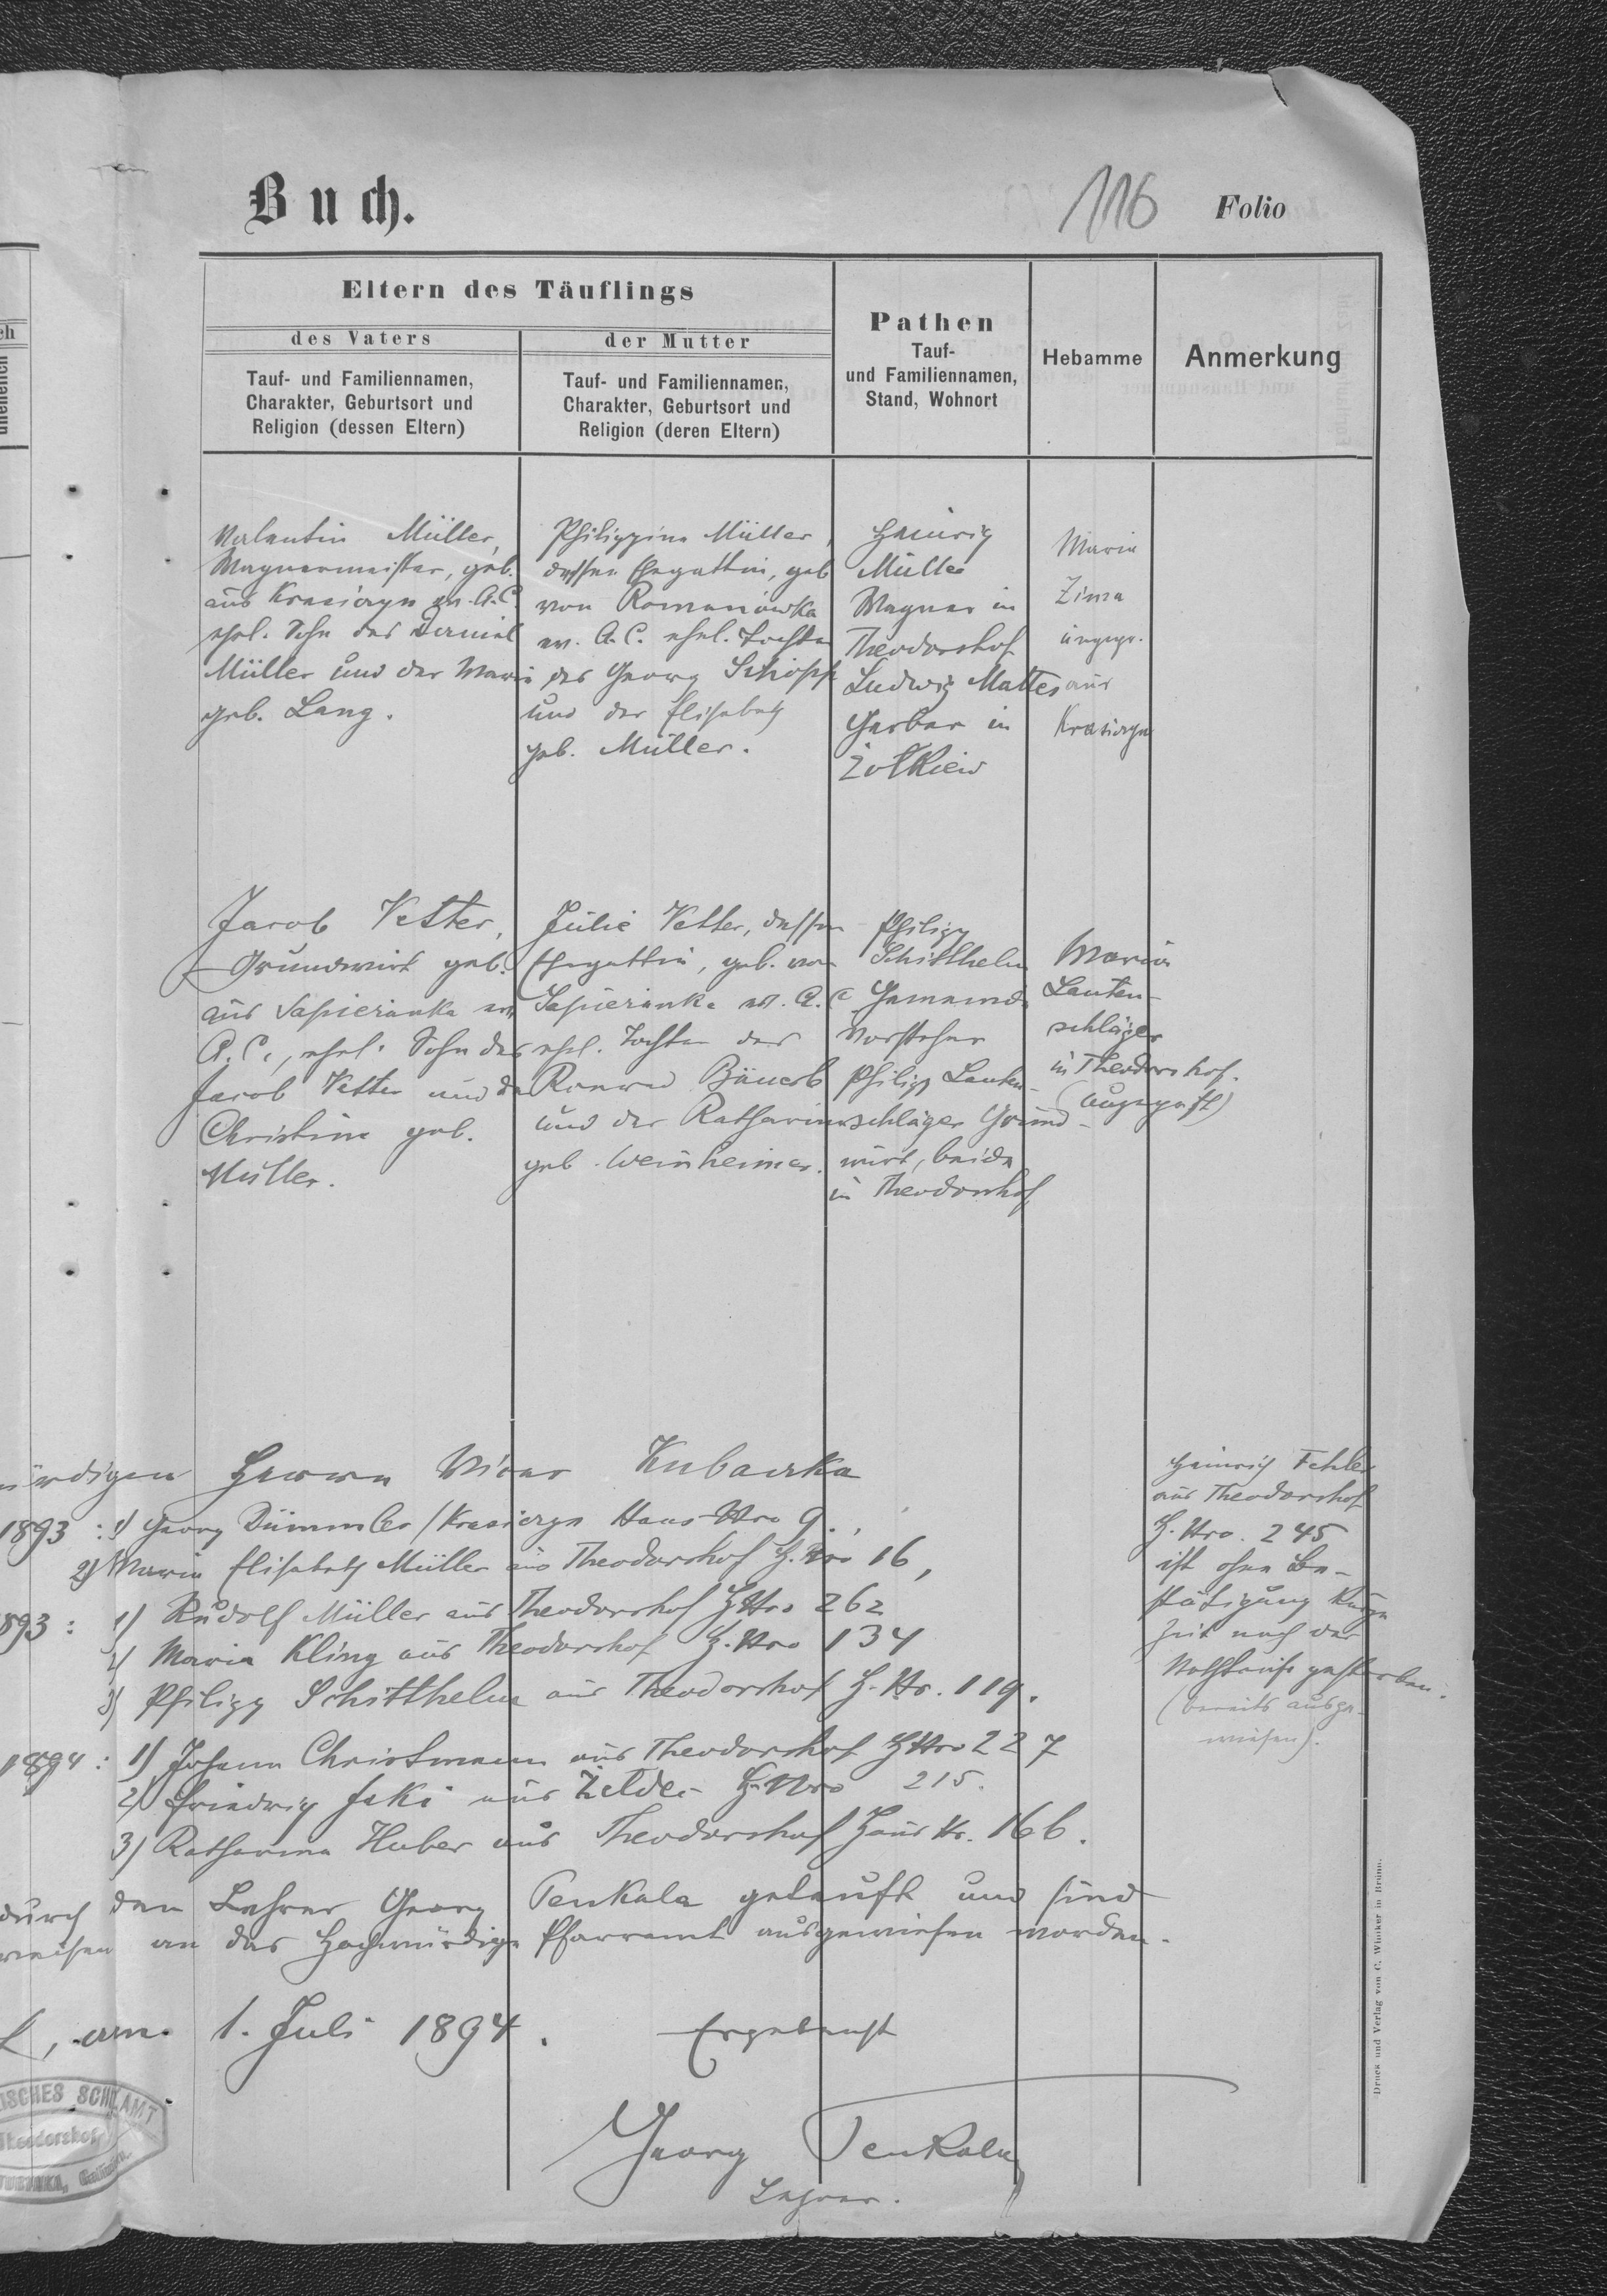 Buch.
116 Folio
Eltern des Täuflings
des Vaters
Tauf- und Familiennamen,
Charakter, Geburtsort und
Religion (dessen Eltern)
der Mutter
Tauf- und Familiennamen,
Charakter, Geburtsort und
Religion (deren Eltern)
Pathen
Tauf-
und Familiennamen,
Stand, Wohnort
Hebamme
Anmerkung
Valentin Müller,
Wagnermeister, geb.
aus Krasiczyn ev. A.C.
ehel. Sohn des Daniel
Müller und der Maria
geb. Lang.
Philippina Müller,
dessen Ehegattin, geb
von Romanówka
ev. A.C. ehel. Tochter
des Georg Schöpp
und der Elisabeth
geb. Müller.
Heinrich
Müller
Wagner in
Theodorshof
Ludwig Mattes
Gerber in
Żółkiew
Maria
Zima
ungepr.
aus
Krasiczyn
Jacob Vetter,
Grundwirt geb.
aus Sapieżanka ev.
A.C., ehel. Sohn des
Jacob Vetter und der
Christine geb.
Müller.
Julie Vetter, dessen
Ehegattin, geb. von
Sapieżanka ev. A.C
ehel. Tochter des
Konrad Bäuerle
und der Katharina
geb. Weinheimer.
Philipp
Schitthelm
Gemeinde
Vorsteher
Philipp Lauten-
schläger Grund-
wirt, beide
in Theodorshof
Maria
Lauten-
schläger
in Theodorshof.
(ungeprüft)
würdigen Herrn Vicar Kubaczka
1893: 1) Georg Dümmler / Krasiczyn Haus-Nro 9.,
2) Maria Elisabeth Müller aus Theodorshof H. Nro 16,
893: 1) Rudolf Müller aus Theodorshof H.Nro 262
2) Maria Kling aus Theodorshof H. Nro 134
3) Philipp Schitthelm aus Theodorshof H. Nr. 119.
1894: 1) Johann Christmann aus Theodorshof H.Nro 227
2) Friedrich Jaki aus Żełdec H. Nro 215.
3) Katharina Huber aus Theodorshof Haus Nr. 166.
durch den Lehrer Georg Penkala getauft und sind
weisen an das Hochwürdige Pfarramt ausgewiesen worden.
Heinrich Fehler
aus Theodorshof
H. Nro. 245
ist ohne Be-
stätigung kurze
Zeit nach der
Nothtaufe gestorben.
(bereits ausge-
wiesen).
am 1. Juli 1894.
Ergebenst
Georg Penkala
Lehrer.
ISCHES SCHULAMT
Theodorshof
Druck und Verlag von C. Winiker in Brünn.